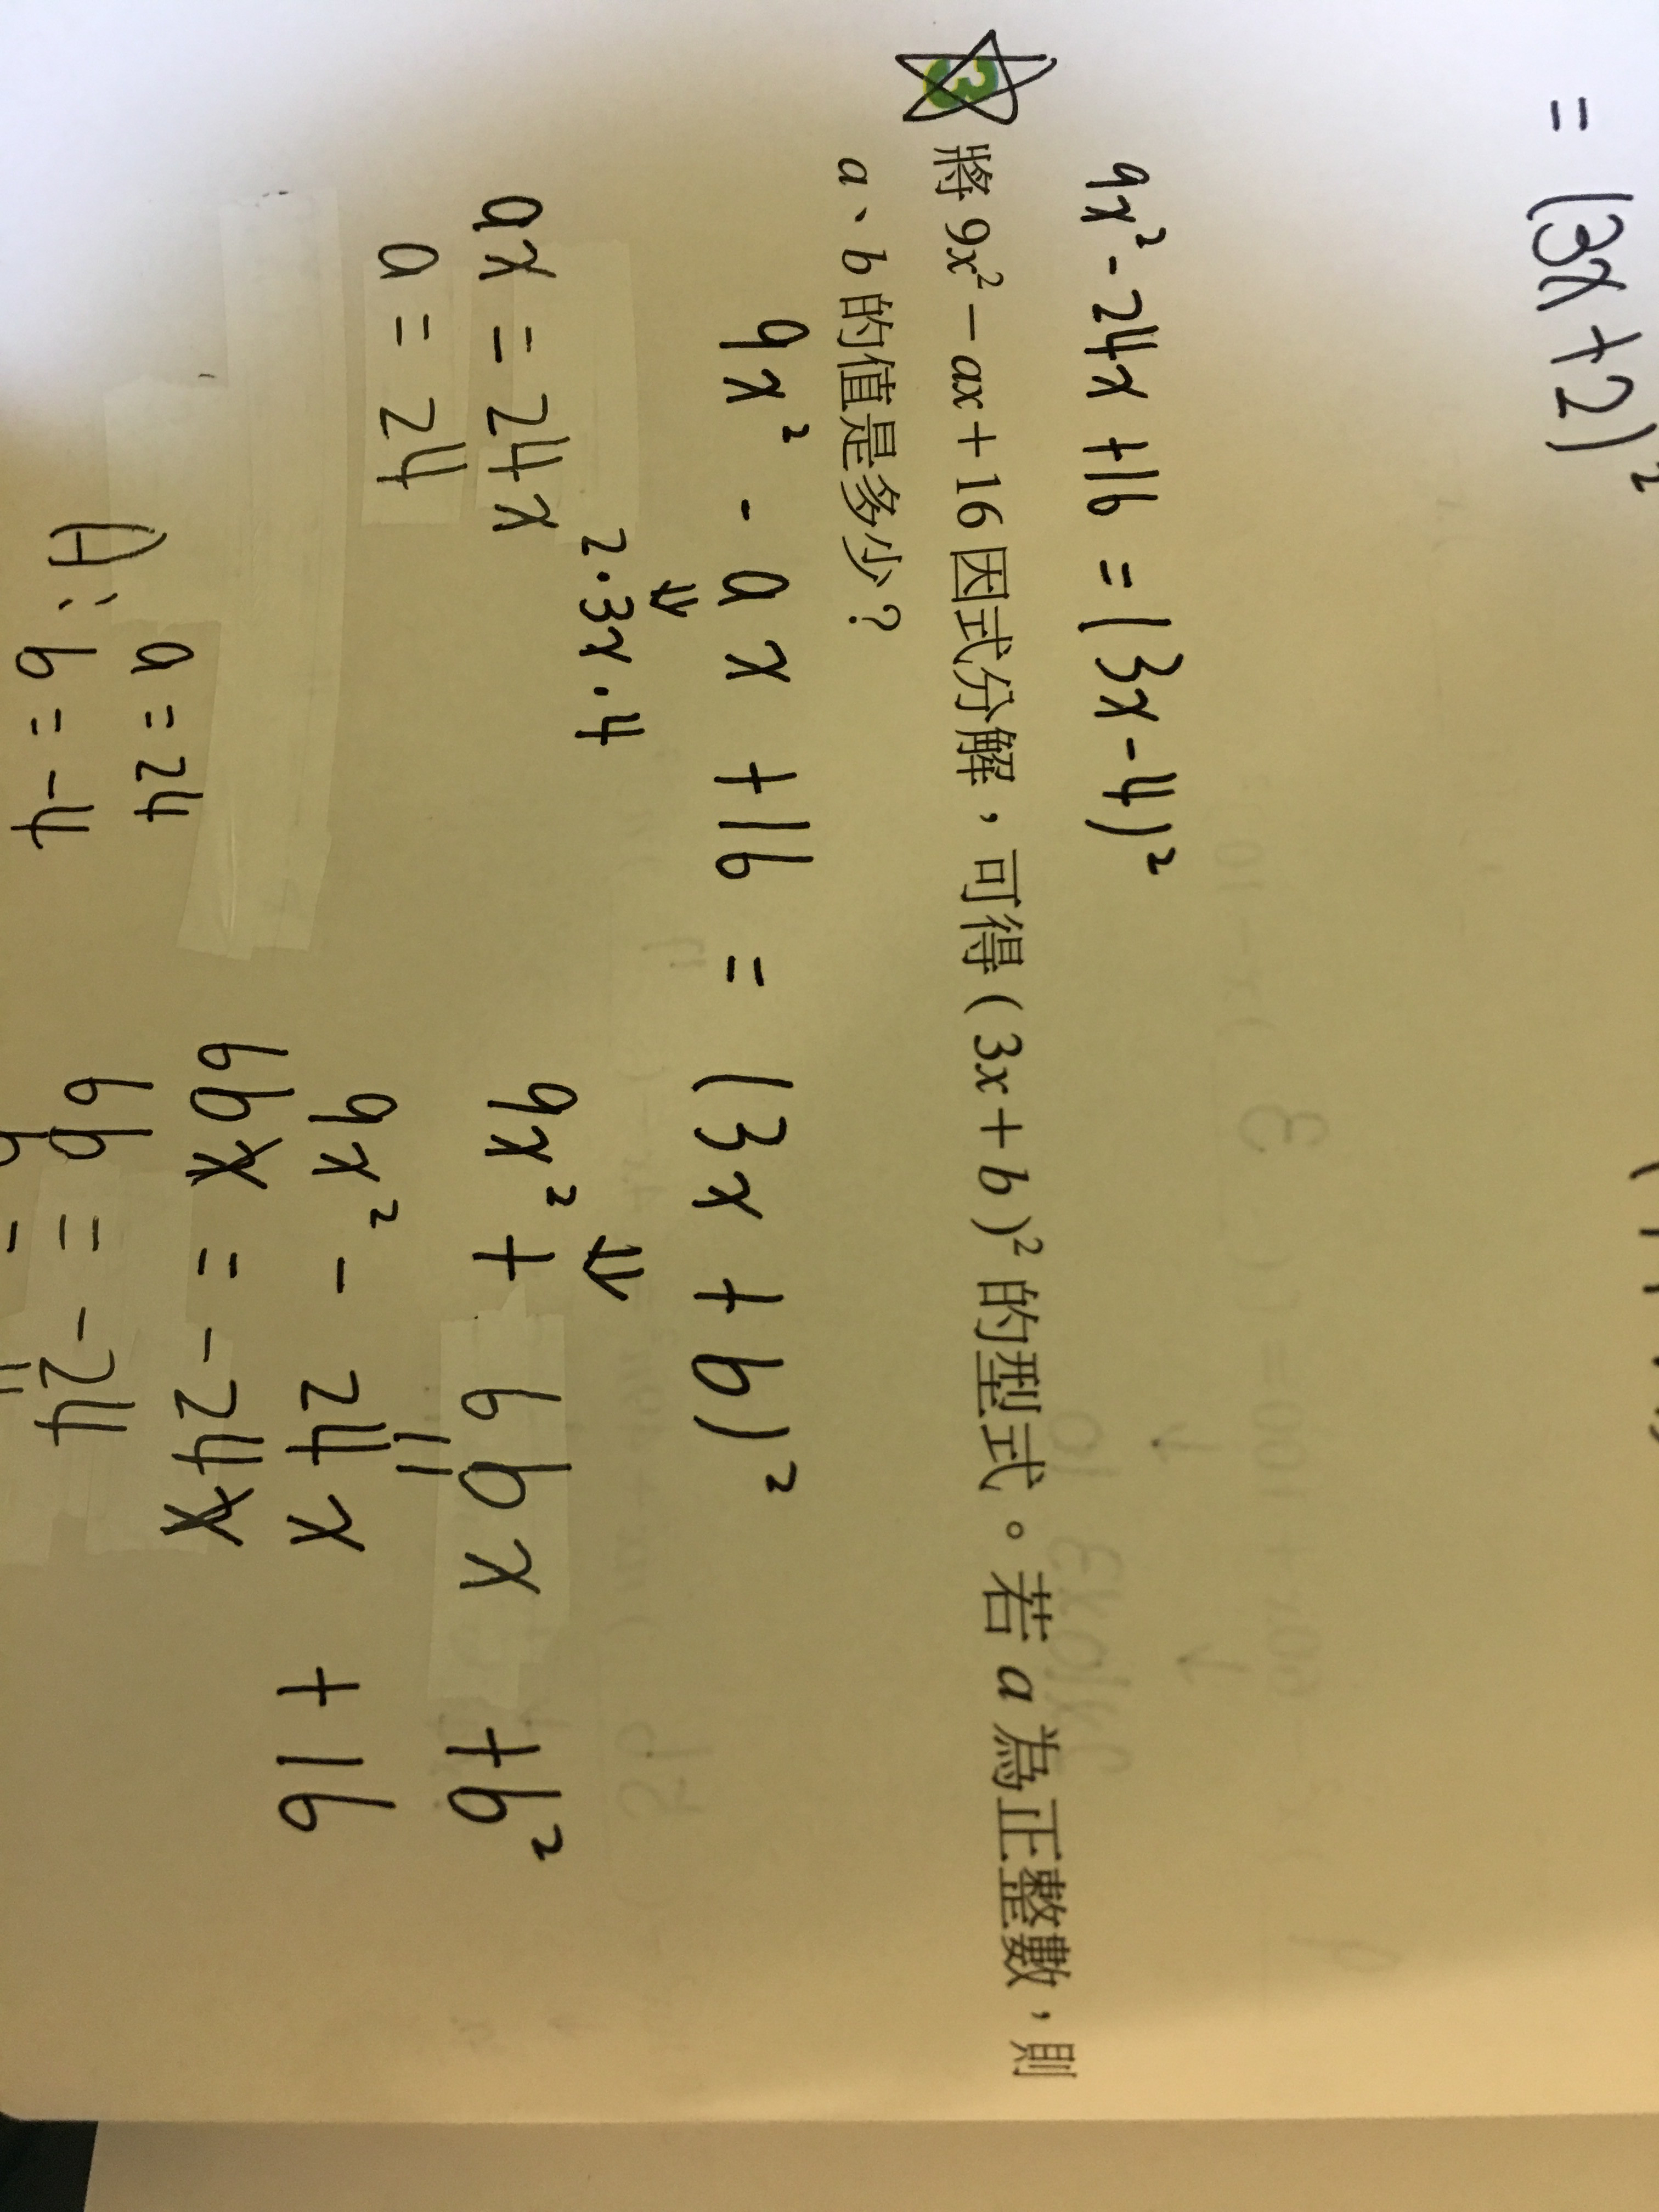 = (3x+2)²
9x²-24x+16=(3x-4)²
3 將9x²－ax＋16因式分解，可得(3x＋b)²的型式。若a為正整數，則
a、b的值是多少？
9x² - ax +16 = (3x+b)²
⇓ ⇓
2·3x·4
ax = 24x
9x²+ 6bx +b²
a = 24
9x² - 24x + 16
6bx = -24x
A: a=24
6b = -24
b=-4